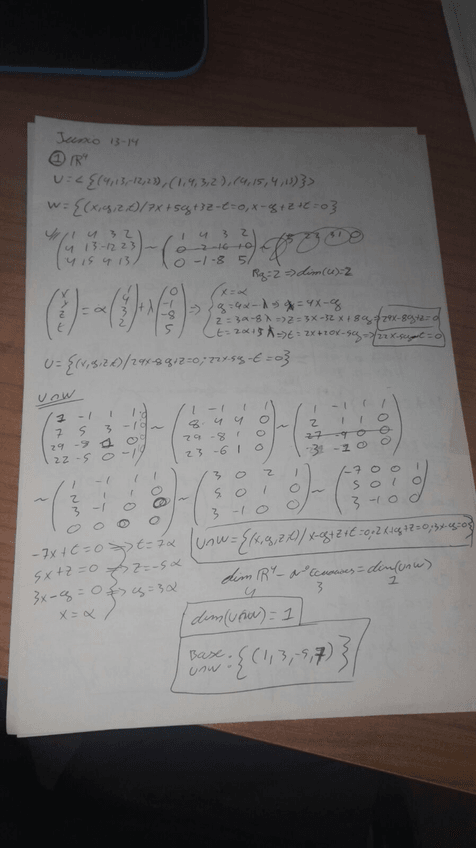 ① ℝ⁴
U = < {(4,13,-12,23), (1,4,3,2), (4,15,4,13)} >
W = {(x,y,z,t) / 7x+5y+3z-t=0, x-y+z+t=0}
(1 4 3 2; 4 13 -12 23; 4 15 4 13) ~ (1 4 3 2; 0 -1 -8 5)
Rg=2 => dim(U)=2
(x y z t) = α (1 4 3 2) + λ (0 -1 -8 5) => { x=α
y=4α-λ => λ=4x-y
z=3α-8λ => z=3x-32x+8y => 29x-8y+z=0
t=2α+5λ => t=2x+20x-5y => 22x-5y-t=0
U = {(x,y,z,t) / 29x-8y+z=0; 22x-5y-t=0}
U∩W
(1 -1 1 1; 7 5 3 -1; 29 -8 1 0; 22 -5 0 -1) ~ (1 -1 1 1; 8 4 4 0; 29 -8 1 0; 23 -6 1 0) ~ (1 -1 1 1; 2 1 1 0; 27 -9 0 0; -3 1 0 0)
~ (1 -1 1 1; 2 1 1 0; 3 -1 0 0; 0 0 0 0) ~ (3 0 2 1; 5 0 1 0; 3 -1 0 0) ~ (-7 0 0 1; 5 0 1 0; 3 -1 0 0)
U∩W = {(x,y,z,t) / x-y+z+t=0, 2x+y+z=0, 3x-y=0}
-7x+t=0 => t=7α
5x+z=0 => z=-5α
3x-y=0 => y=3α
x=α
dim ℝ⁴ - nº ecuaciones = dim(U∩W)
4 3 1
dim(U∩W) = 1
Base U∩W = {(1,3,-5,7)}